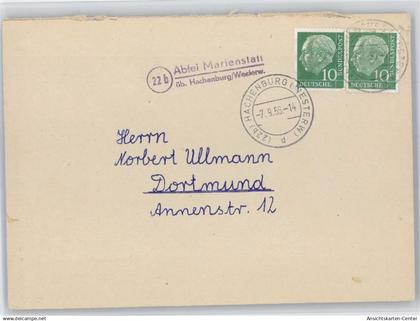 22b
Abtei Marienstatt
üb. Hachenburg/Westerw.
10 10
DEUTSCHE DEUTSCHE
BUNDESPOST BUNDESPOST
(22b) HACHENBURG (WESTERW)
-7.9.55-14
d
Herrn
Norbert Ullmann
Dortmund
Annenstr. 12
Ansichtskarten-Center